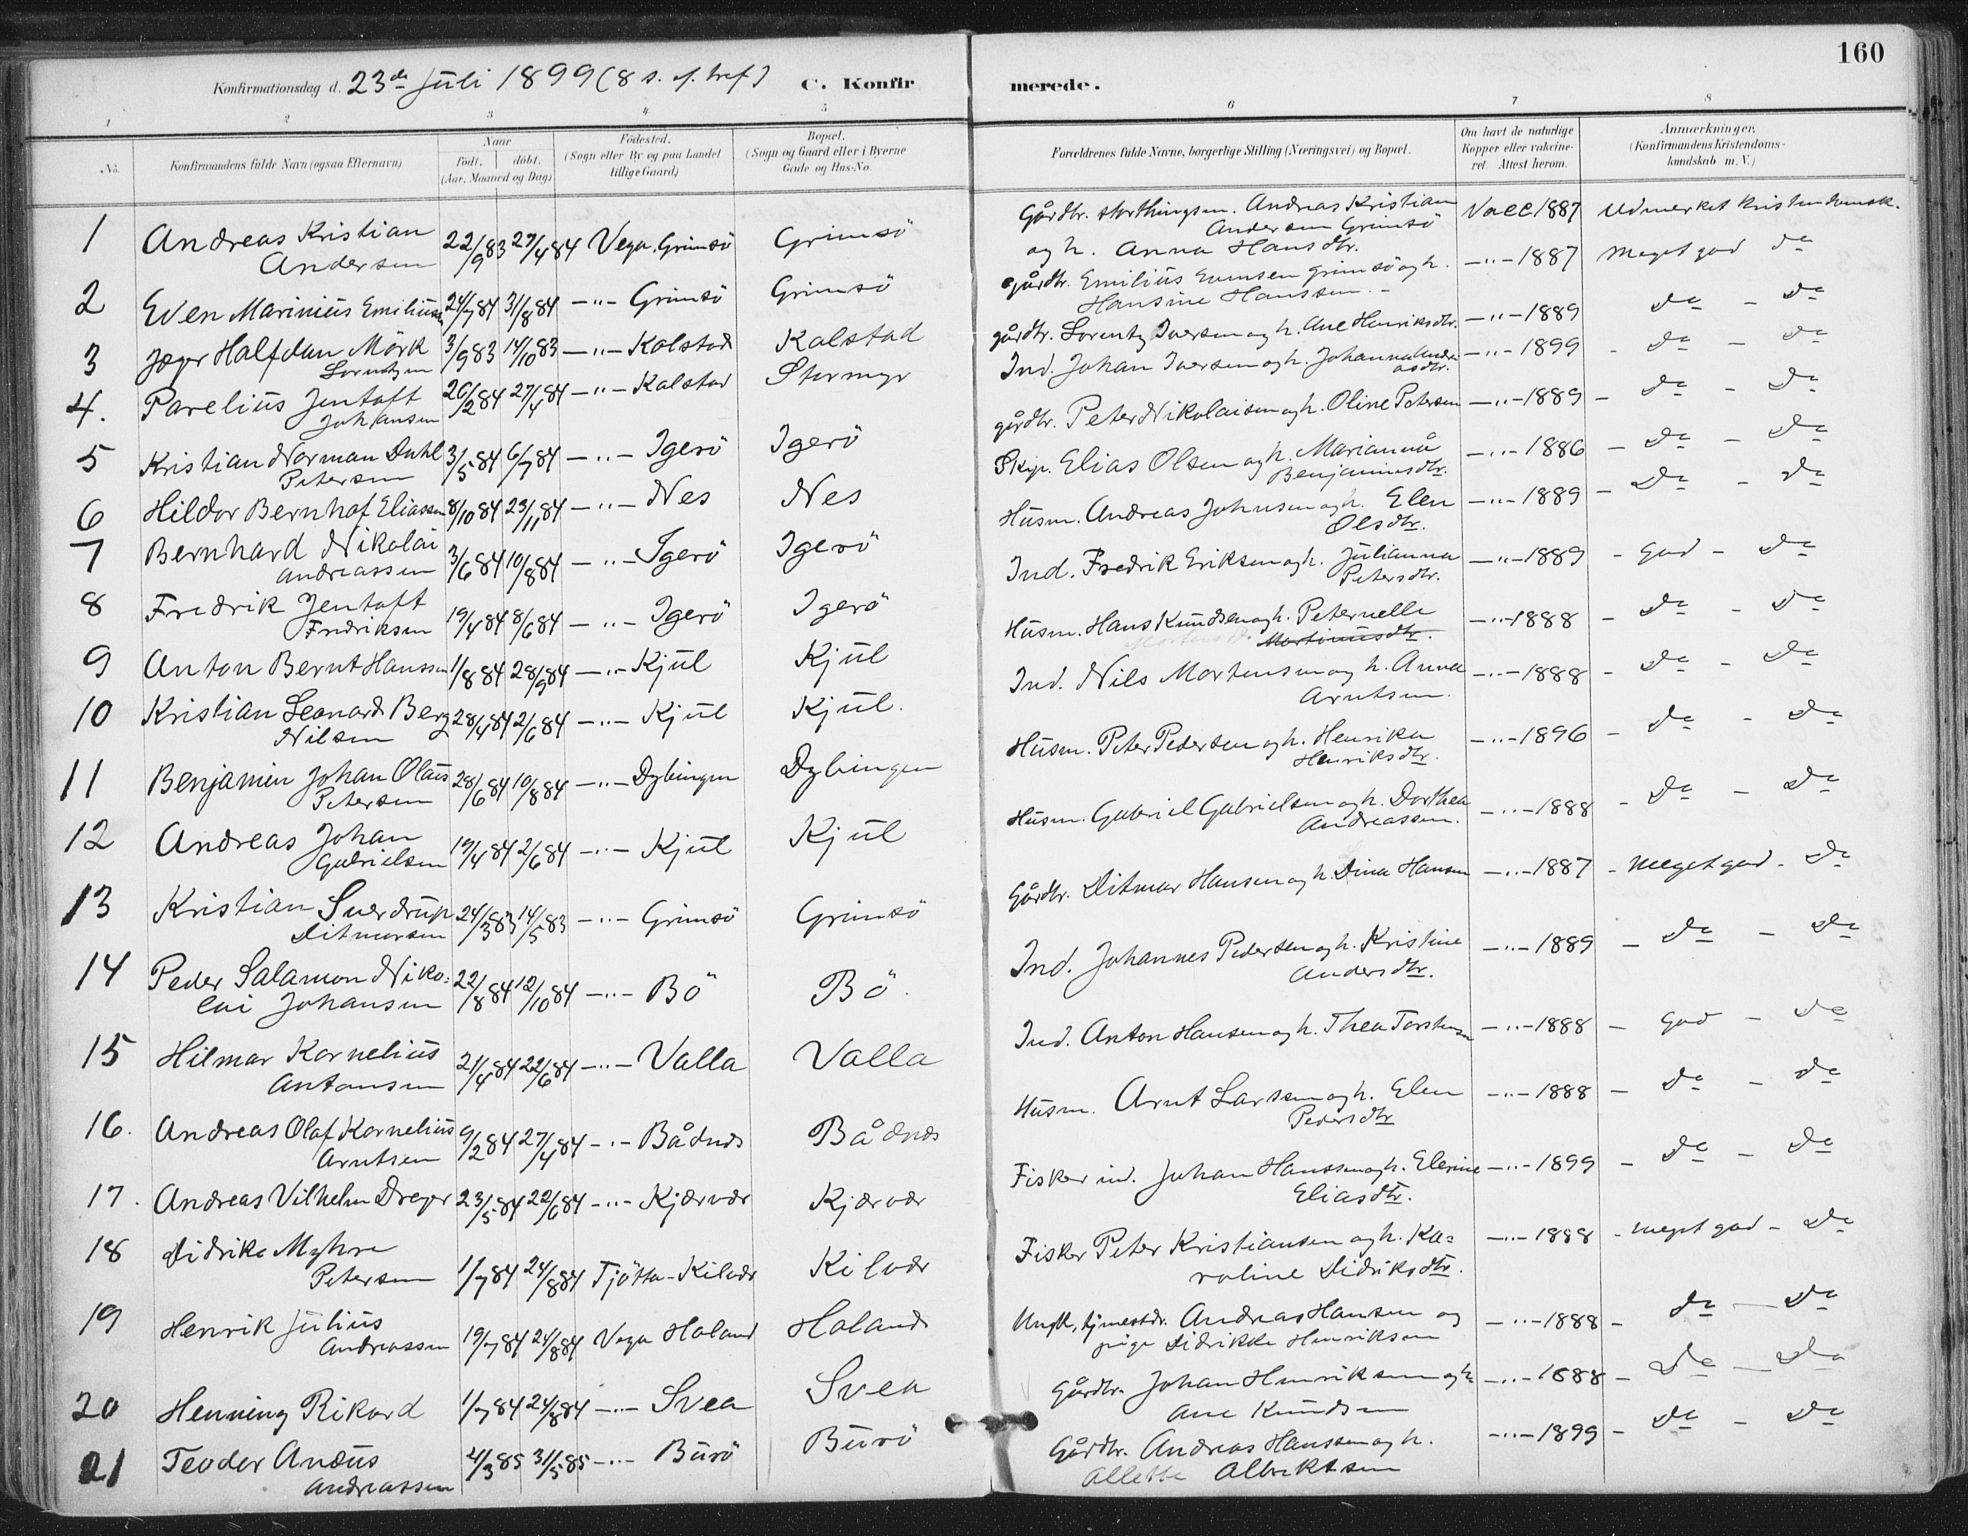 160
Konfirmationsdag d. 23de Juli 1899 (8 s. ef. tref.) C. Konfirmerede.
1 2 3 4 5 6 7 8
No. Konfirmandens fulde Navn (ogsaa Efternavn) Naar født. døbt. (Aar, Maaned og Dag) Födested. (Sogn eller By og paa Landet tillige Gaard) Bopæl. (Sogn og Gaard eller i Byerne Gade og Hus-No. Forældrenes fulde Navne, borgerlige Stilling (Næringsvei) og Bopæl. Om havt de naturlige Kopper eller vakcineret. Attest herom. Anmærkninger. (Konfirmandens Kristendomskundskab m. V.)
1 Andreas Kristian Andersen 22/9 83 27/4 84 Vega, Grimsö Grimsö Gårdbr. storthingsm. Andreas Kristian Andersen Grimsö og h. Anna Hansdtr. Vacc 1887 Udmerket Kristendomsk.
2 Even Marinius Emiliusen 24/7 84 31/8 84 —"— Grimsö Grimsö gårdbr. Emilius Evensen Grimsö og h. Hansine Hanssen. —"— 1887 Meget god do
3 Jæger Halfdan Mörk Lorentzen 3/9 83 14/10 83 —"— Kolstad Kolstad gårdbr. Lorentz Iversen og h. Ane Henriksdtr. —"— 1889 do — do
4. Parelius Jentoft Johansen 26/2 84 27/4 84 —"— Kolstad Stormyr Ind. Johan Iversen og h. Johanna Andreasdtr. —"— 1899 - do — do
5 Kristian Norman Dahl Petersen 3/5 84 6/7 84 —"— Igerö Igerö gårdbr. Peter Nikolaisen og h. Oline Petersen —"— 1889 — do — do
6 Hildor Bernhof Eliassen 8/10 84 23/11 84 —"— Nes Nes Skip. Elias Olsen og h. Marianna Benjaminsdtr. —"— 1886 — do — do
7 Bernhard Nikolai Andreassen 3/6 84 10/8 84 —"— Igerö Igerö Husm. Andreas Johnsen og h. Elen Olsdtr. —"— 1889 — do — do
8 Fredrik Jentoft Fredriksen 19/4 84 8/6 84 —"— Igerö Igerö Ind. Fredrik Eriksen og h. Julianna Petersdtr. —"— 1889 - god — do
9 Anton Bernt Hanssen 1/8 84 28/9 84 —"— Kjul Kjul Husm. Hans Knudsen og h. Peternelle Mortinusdtr. —"— 1888 — do — do
10 Kristian Leonard Berg Nilsen 28/4 84 2/6 84 —"— Kjul Kjul. Ind. Nils Mortensen og h. Anna Arntsen. —"— 1888 — do — do
11 Benjamin Johan Olaus Petersen 28/6 84 10/8 84 —"— Dybingen Dybingen Husm. Peter Pedersen og h. Henrika Henriksdtr. —"— 1896 — do — do
12 Andreas Johan Gabrielsen 19/4 84 2/6 84 —"— Kjul Kjul Husm. Gabriel Gabrielsen og h. Dorthea Andreassen. —"— 1888 — do — do
13 Kristian Sverdrup Ditmarsen 24/3 83 14/5 83 —"— Grimsö Grimsö Gårdbr. Ditmar Hansen og h. Dina Hansen —"— 1887 - Meget god - do
14 Peder Salamon Nikolai Johansen 22/8 84 12/10 84 —"— Bö Bö. Ind. Johannes Pedersen og h. Kristine Andersdtr. —"— 1889 — do — do
15 Hilmar Kornelius Antonsen 21/4 84 22/6 84 —"— Valla Valla Ind. Anton Hansen og h. Thea Torstensen —"— 1888 — god — do
16. Andreas Olaf Kornelius Arntsen 9/2 84 27/4 84 —"— Bådnes Bådnes Husm. Arnt Larssen og h. Elen Pedersdtr —"— 1888 — do — do
17. Andreas Vilhelm Dreyer 23/5 84 22/6 84 —"— Kjærvær Kjærvær Fisker ind. Johan Hanssen og h. Elerine Eliasdtr. —"— 1899 — do — do
18 Didrik Myhre Petersen 1/7 84 24/8 84 Tjötta - Kilvær Kilvær Fisker Peter Kristiansen og h. Karoline Didriksdtr. —"— 1888 - meget god - do
19 Henrik Julius Andreassen 19/7 84 24/8 84 Vega Holand Holand Ungk., tjenestdr. Andreas Hansen og pige Didrikke Henriksen —"— 1888 — do — do
20 Henning Rikard 1/7 84 24/8 84 —"— Svea Svea Gårdbr. Johan Henriksen og h. Ane Knudsen —"— 1888 — do — do
21 Teodor Anæus Andreassen 4/3 85 31/5 85 —"— Burö Burö Gårdbr. Andreas Hanssen og h. Allette Albriktsen —"— 1899 — do — do